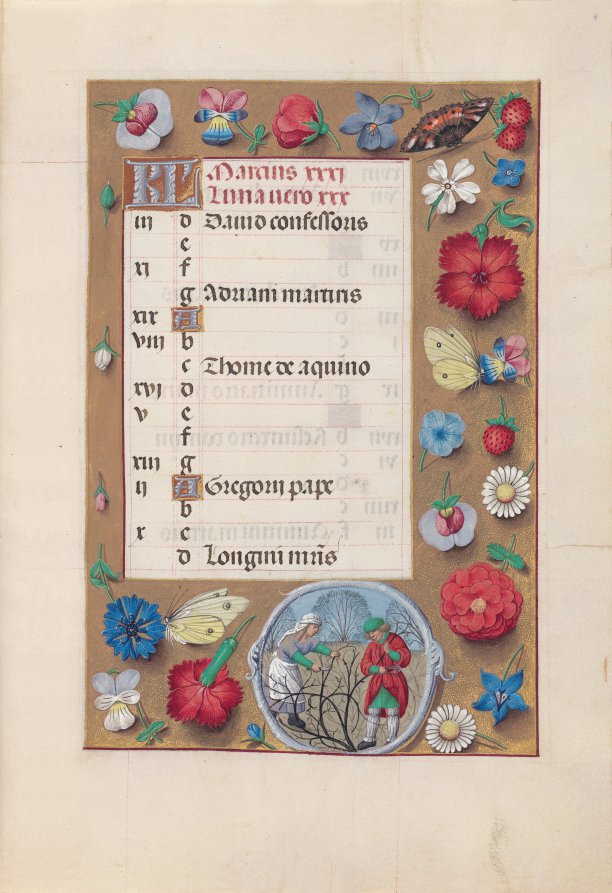 KL Marcius xxxi
Luna vero xxx
iii d Dauid confessoris
e
xi f
g Adriani martiris
xix A
viii b
c Thome de aquino
xvi d
v e
f
xiii g
ii A Gregorii pape
b
x c
d Longini mr̃is